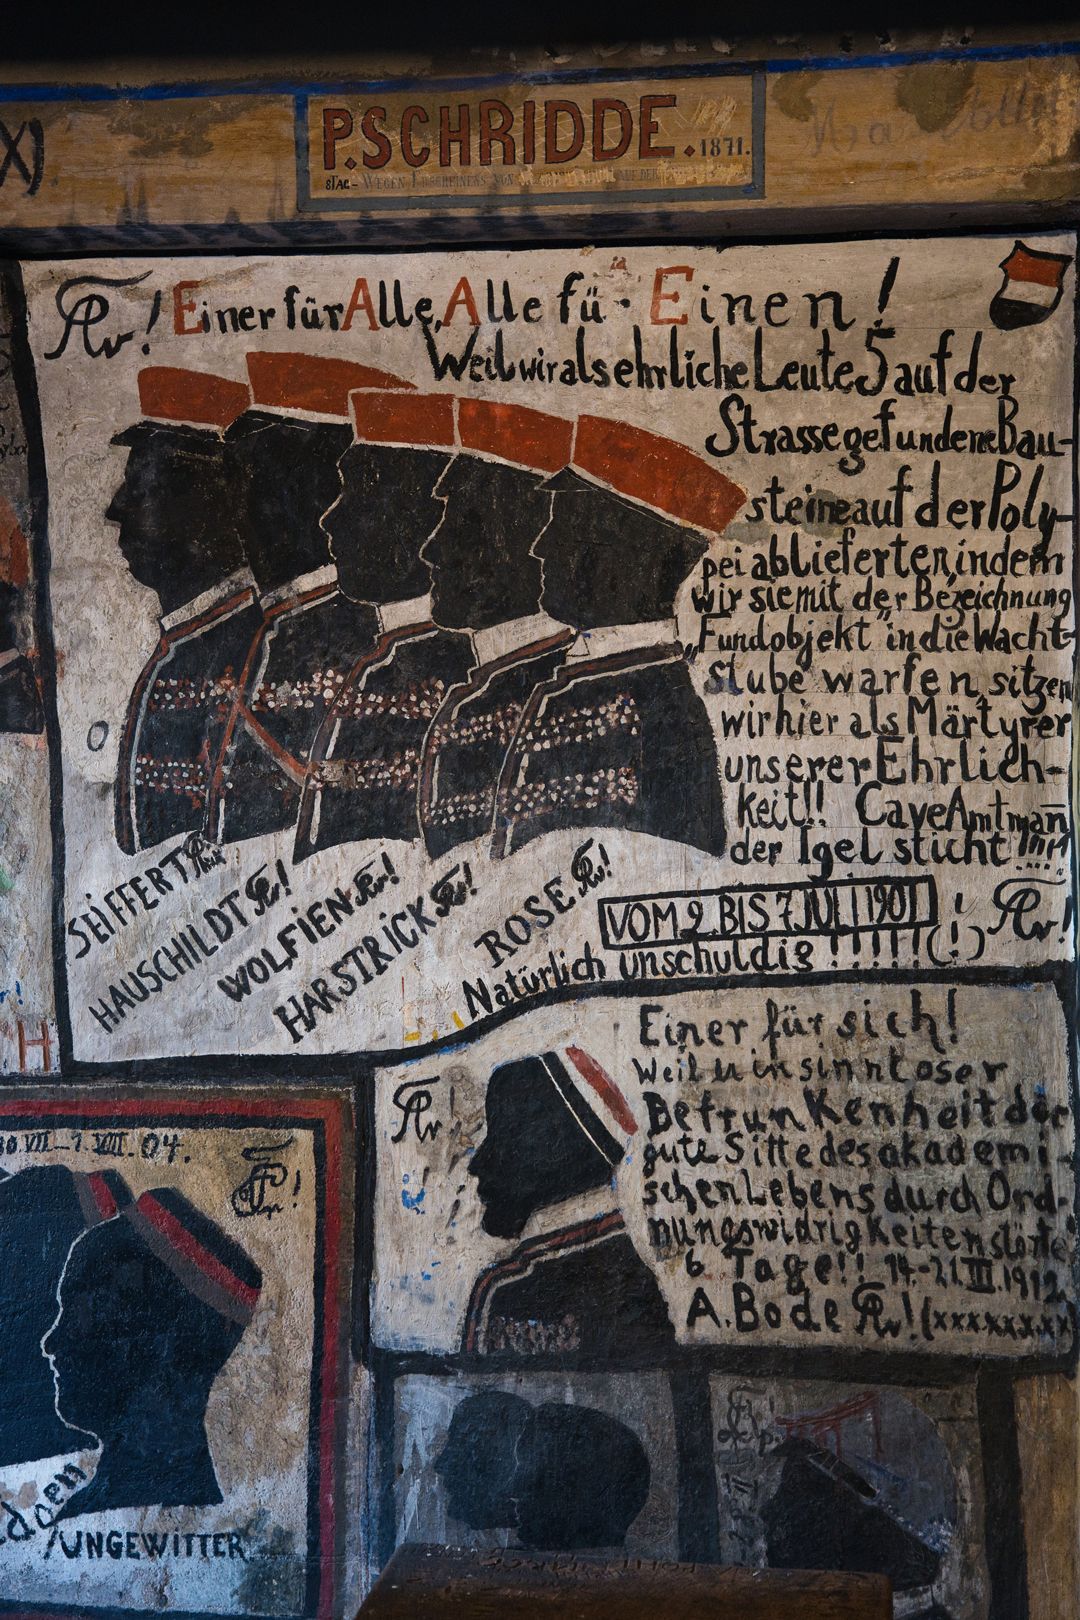 X)
P.SCHRIDDE.1871.
8TAG- WEGEN ERSCHEINENS VON
Einer für Alle, Alle fü Einen!
Weil wir als ehrliche Leute 5 auf der
Strasse gefundene Bau-
steine auf der Poly-
pei ablieferten, indem
wir sie mit der Bezeichnung
„Fundobjekt" in die Wacht-
stube warfen, sitzen
wir hier als Märtyrer
unserer Ehrlich-
keit!! Cave Amtman̄
der Igel sticht !!!!
SEIFFERT
HAUSCHILDT
WOLFIEN
HARSTRICK
ROSE
VOM 2. BIS 7. JULI 1901
Natürlich unschuldig !!!!!!(!)
Einer für sich!
Weil er in sinnloser
Betrunkenheit der
gute Sitte des akademi-
schen Lebens durch Ord-
nungswidrigkeiten störte
6 Tage!! 14.-21.III.1912.
A. Bode (xxxxxxxx)
30.VII-1.VIII.04.
UNGEWITTER